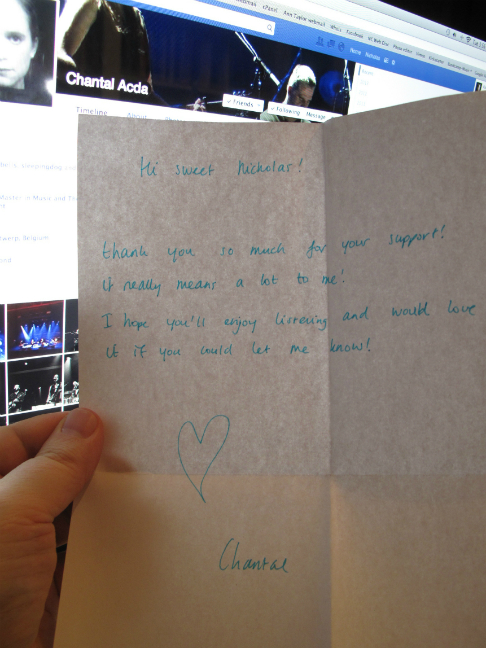 Chantal Acda
Friends
Following
Message
Timeline
About
Home
Belgium
Hi sweet Nicholas!
thank you so much for your support!
it really means a lot to me!
I hope you'll enjoy listening and would love
it if you could let me know!
Chantal